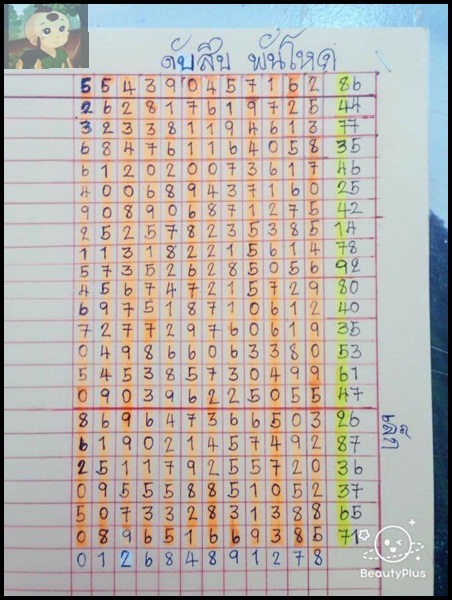 ดับสิบ พันโหด
5 5 4 3 9 0 4 5 7 1 6 2 86
2 6 2 8 1 7 6 1 9 7 2 5 44
3 2 3 3 8 1 1 9 4 6 1 3 77
6 8 4 7 6 1 1 6 4 0 5 8 35
6 1 2 0 2 0 0 7 3 6 1 7 46
4 0 0 6 8 9 4 3 7 1 6 0 25
9 0 8 9 0 6 8 7 1 2 7 5 42
2 5 2 5 7 8 2 3 5 3 8 5 14
1 1 3 1 8 2 2 1 5 6 1 4 78
5 7 3 5 2 6 2 8 5 0 5 6 92
4 5 6 7 4 7 2 1 5 7 2 9 80
6 9 7 5 1 8 7 1 0 6 1 2 40
7 2 7 7 2 9 7 6 0 6 1 9 35
0 4 9 8 6 6 0 6 3 3 8 0 53
5 4 5 3 8 5 7 3 0 4 9 9 61
0 9 0 3 9 6 2 2 5 0 5 5 47
8 6 9 6 4 7 3 6 6 5 0 3 26
6 1 9 0 2 1 4 5 7 4 9 2 87
2 5 1 1 7 9 2 5 5 7 2 0 36
0 9 5 5 5 8 8 5 1 0 5 2 37
5 0 7 3 3 2 8 3 1 3 8 8 65
0 8 9 6 5 1 6 6 9 3 8 5 71
0 1 2 6 8 4 8 9 1 2 7 8
BeautyPlus